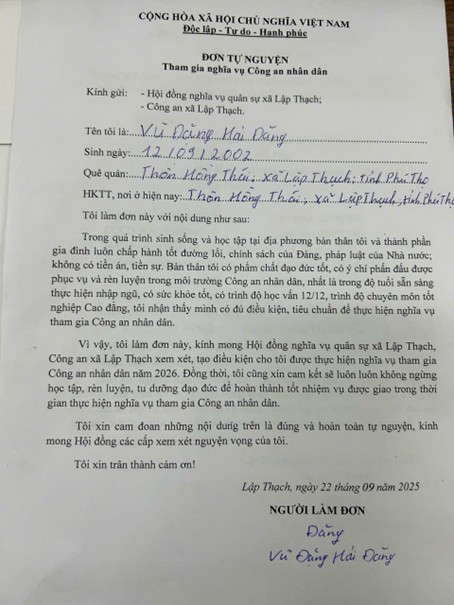 CỘNG HÒA XÃ HỘI CHỦ NGHĨA VIỆT NAM
Độc lập - Tự do - Hạnh phúc
ĐƠN TỰ NGUYỆN
Tham gia nghĩa vụ Công an nhân dân
Kính gửi: - Hội đồng nghĩa vụ quân sự xã Lập Thạch;
- Công an xã Lập Thạch.
Tên tôi là: Vũ Đặng Hải Đăng
Sinh ngày: 12/09/2002
Quê quán: Thôn Hồng Thái, xã Lập Thạch, tỉnh Phú Thọ
HKTT, nơi ở hiện nay: Thôn Hồng Thái, xã Lập Thạch, tỉnh Phú Thọ
Tôi làm đơn này với nội dung như sau:
Trong quá trình sinh sống và học tập tại địa phương bản thân tôi và thành phần
gia đình luôn chấp hành tốt đường lối, chính sách của Đảng, pháp luật của Nhà nước;
không có tiền án, tiền sự. Bản thân tôi có phẩm chất đạo đức tốt, có ý chí phấn đấu được
phục vụ và rèn luyện trong môi trường Công an nhân dân, nhất là trong độ tuổi sẵn sàng
thực hiện nhập ngũ, có sức khỏe tốt, có trình độ học vấn 12/12, trình độ chuyên môn tốt
nghiệp Cao đẳng, tôi nhận thấy mình có đủ điều kiện, tiêu chuẩn để thực hiện nghĩa vụ
tham gia Công an nhân dân.
Vì vậy, tôi làm đơn này, kính mong Hội đồng nghĩa vụ quân sự xã Lập Thạch,
Công an xã Lập Thạch xem xét, tạo điều kiện cho tôi được thực hiện nghĩa vụ tham gia
Công an nhân dân năm 2026. Đồng thời, tôi cũng xin cam kết sẽ luôn luôn không ngừng
học tập, rèn luyện, tu dưỡng đạo đức để hoàn thành tốt nhiệm vụ được giao trong thời
gian thực hiện nghĩa vụ tham gia Công an nhân dân.
Tôi xin cam đoan những nội dung trên là đúng và hoàn toàn tự nguyện, kính
mong Hội đồng các cấp xem xét nguyện vọng của tôi.
Tôi xin trân thành cảm ơn!
Lập Thạch, ngày 22 tháng 09 năm 2025
NGƯỜI LÀM ĐƠN
Đăng
Vũ Đặng Hải Đăng